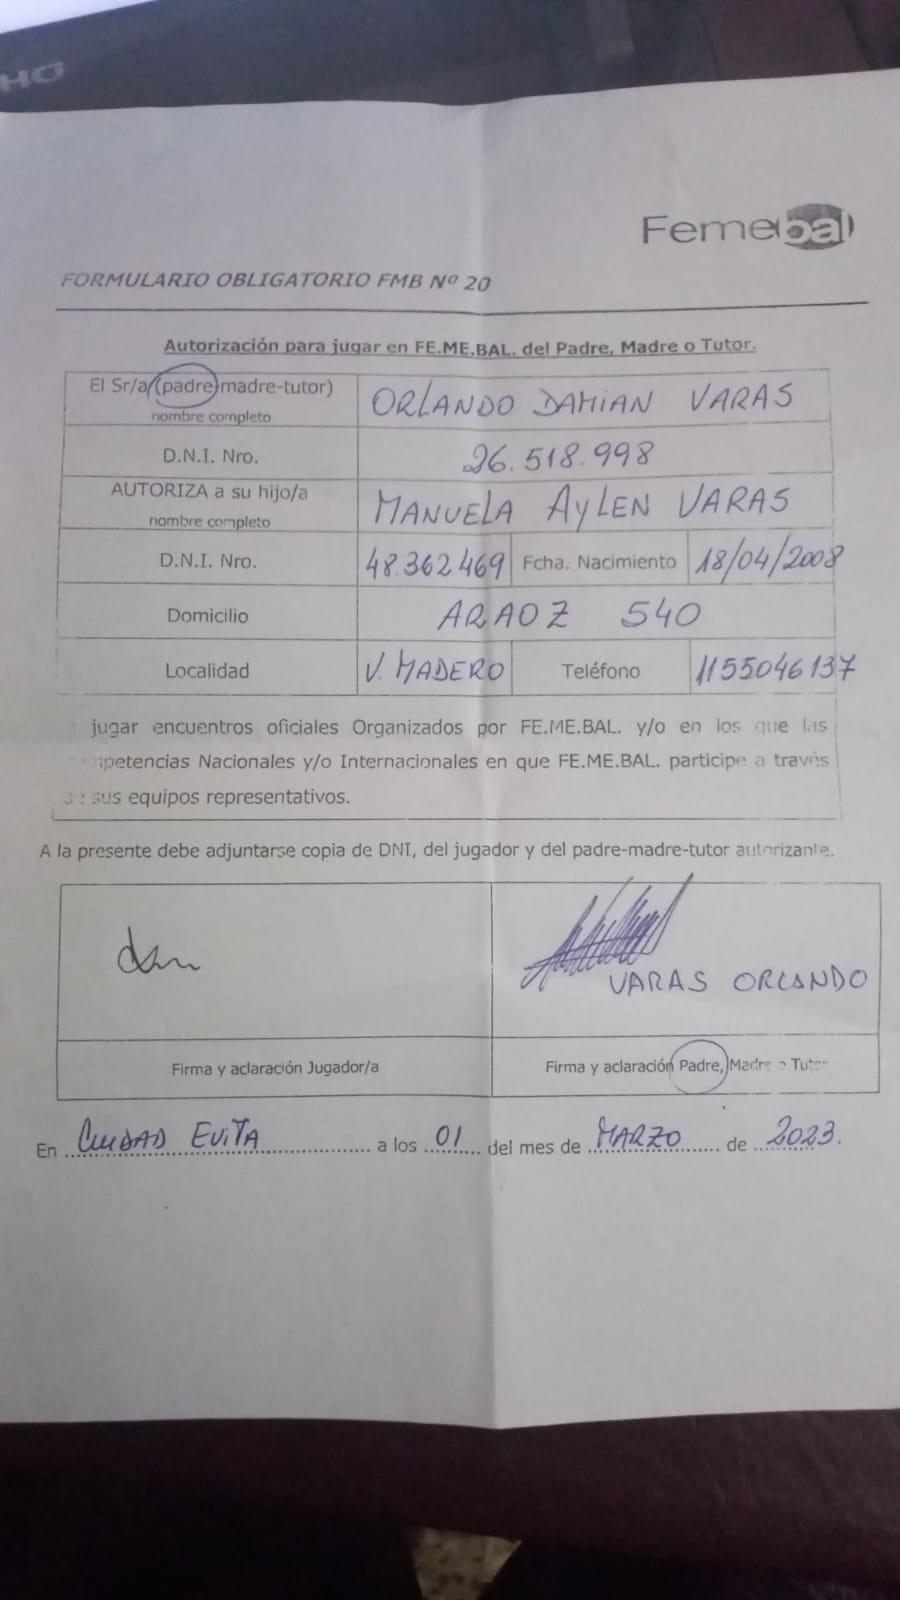 HO
Femebal
FORMULARIO OBLIGATORIO FMB Nº 20
Autorización para jugar en FE.ME.BAL. del Padre, Madre o Tutor.
El Sr/a (padre-madre-tutor) nombre completo ORLANDO DAMIAN VARAS
D.N.I. Nro. 26.518.998
AUTORIZA a su hijo/a nombre completo MANUELA AYLEN VARAS
D.N.I. Nro. 48.362469 Fcha. Nacimiento 18/04/2008
Domicilio ARAOZ 540
Localidad V. MADERO Teléfono 1155046137
jugar encuentros oficiales Organizados por FE.ME.BAL. y/o en los que las
competencias Nacionales y/o Internacionales en que FE.ME.BAL. participe a través
de sus equipos representativos.
A la presente debe adjuntarse copia de DNI, del jugador y del padre-madre-tutor autorizante.
VARAS ORLANDO
Firma y aclaración Jugador/a Firma y aclaración Padre, Madre o Tutor
En CIUDAD EVITA a los 01 del mes de MARZO de 2023.